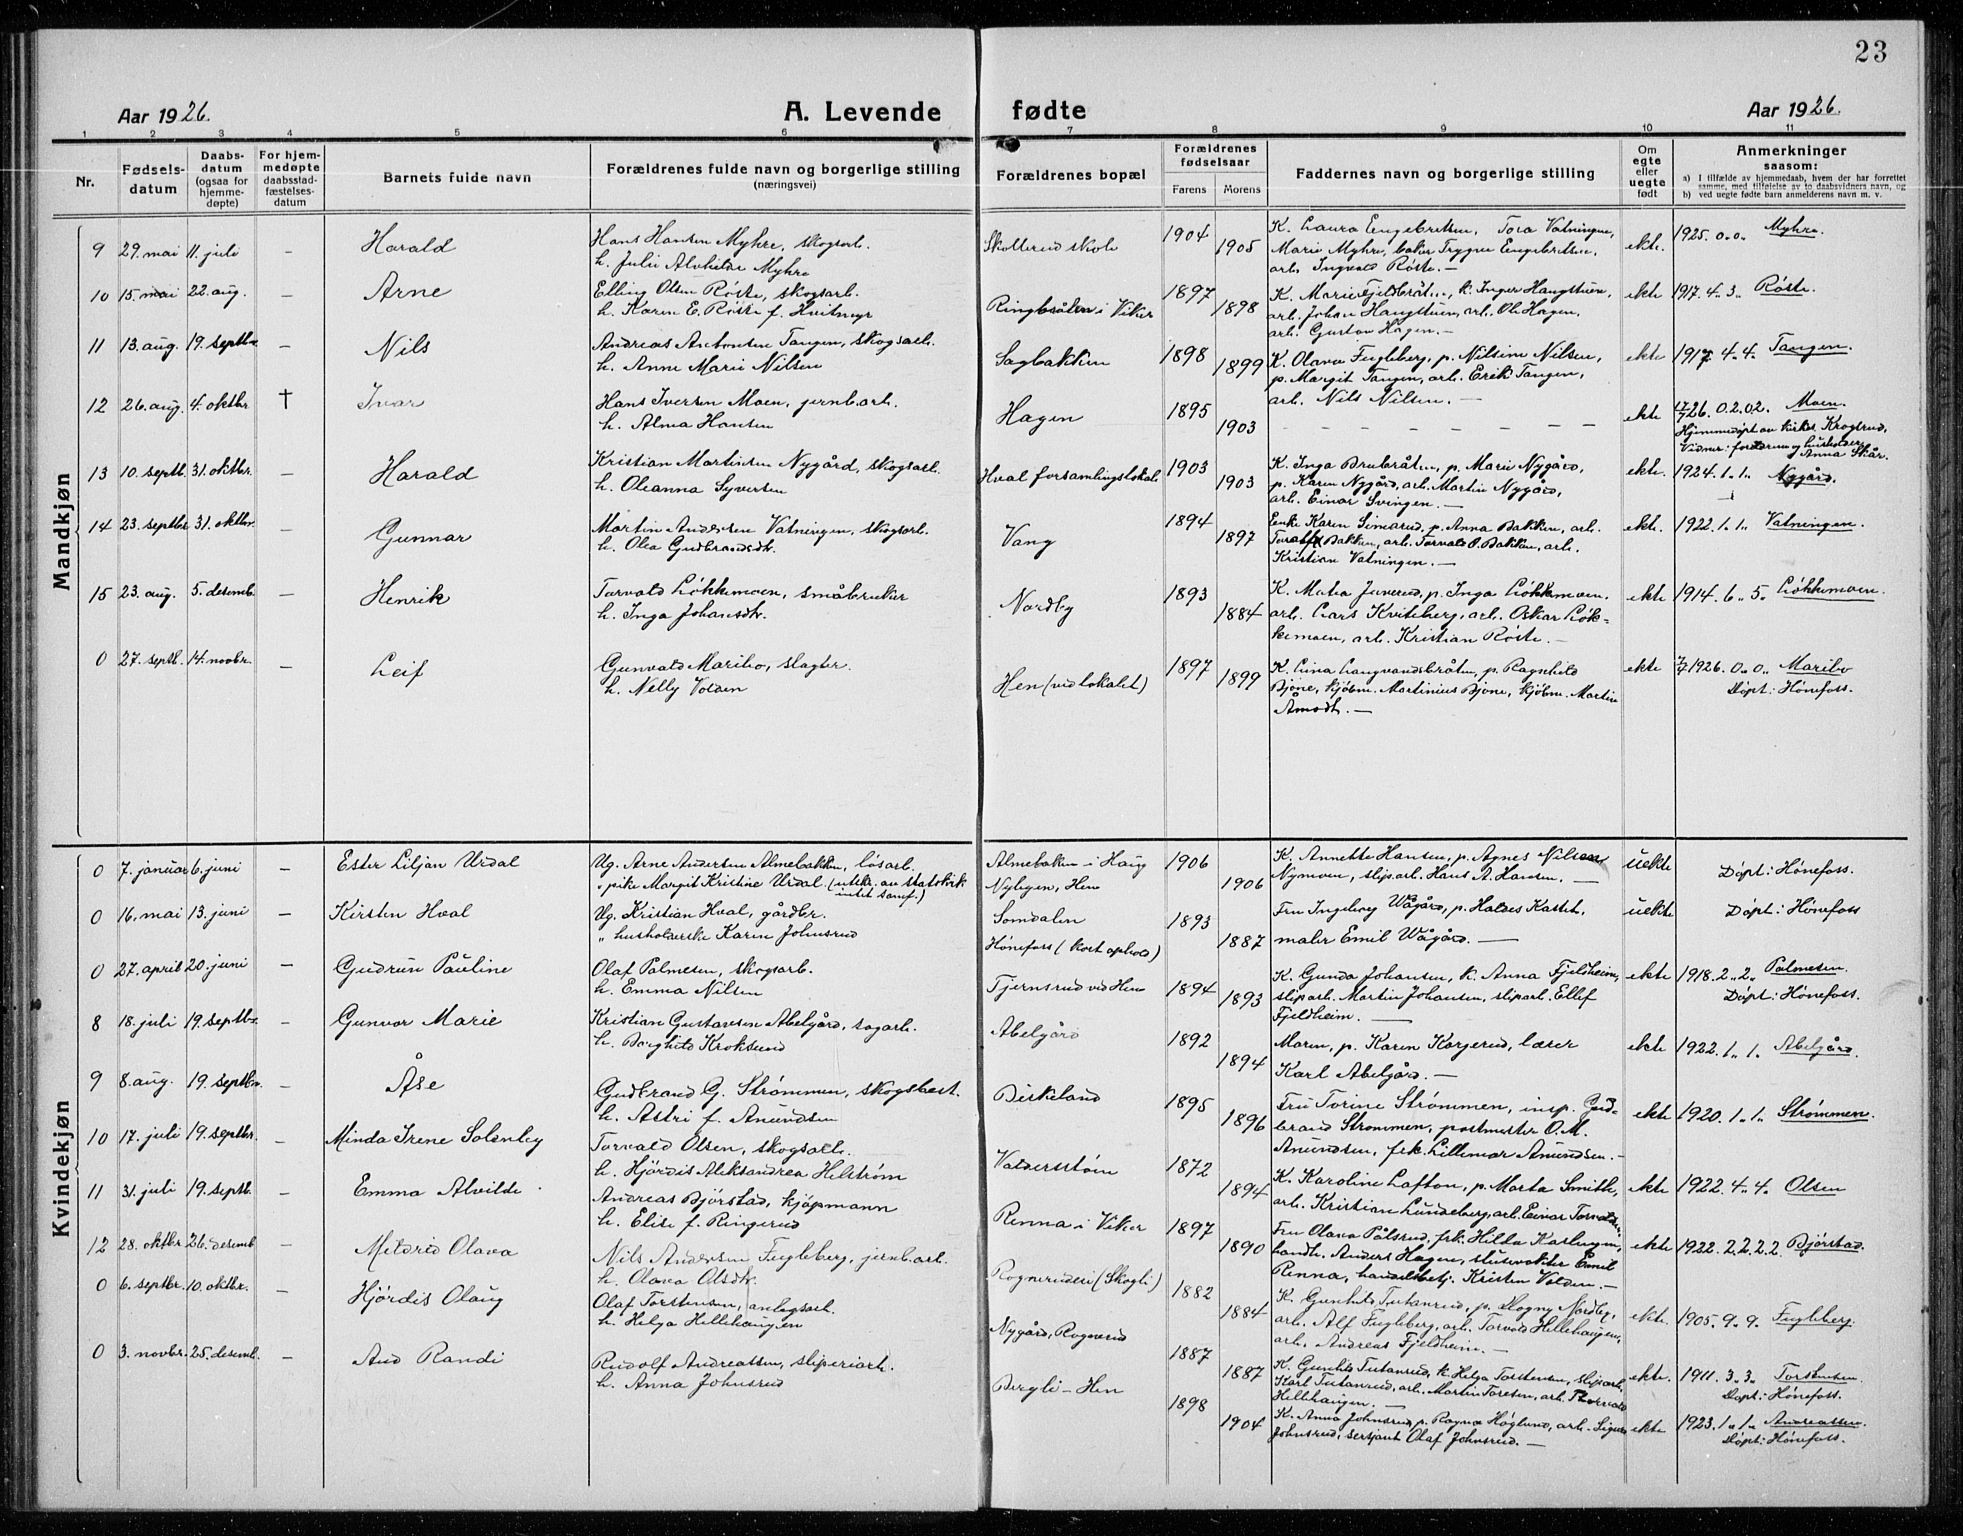 23
Aar 1926.
A. Levende fødte
Aar 1926.
1 2 3 4 5 6 7 8 9 10 11
Nr.
Fødsels-datum
Daabs-datum (ogsaa for hjemme-døpte)
For hjem-medøpte daabsstad-fæstelses-datum
Barnets fulde navn
Forældrenes fulde navn og borgerlige stilling (næringsvei)
Forældrenes bopæl
Forældrenes fødselsaar
Farens Morens
Faddernes navn og borgerlige stilling
Om egte eller uegte født
Anmerkninger saasom:
a) I tilfælde av hjemmedaab, hvem der har forrettet samme, med tilføielse av to daabsvidners navn, og
b) ved uegte fødte barn anmelderens navn m. v.
Mandkjøn
9 29. mai 11. juli – Harald
Hans Hansen Myhre, skogsarb.
h. Julie Alvhilde Myhre
Skollerud skole 1904 1905
K. Laura Engebretsen, Tora Vatningen,
Marie Myhre, baker Trygve Engebretsen,
arb. Ingvald Røste. –
ekte. 1925. 0. 0. Myhre.
10 15. mai 22. aug. – Arne
Elling Olsen Røste, skogsarb.
h. Karen E. Røste f. Hvitmyr
Ringbsålen i Viker 1897 1898
K. Marie Fjeldbråten, k. Inger Haugstuen,
arb. Johan Haugstuen, arb. Ole Hagen,
arb. Gustav Hagen. –
ekte 1917. 4. 3. Røste.
11 13. aug. 19. septbr. – Nils
Andreas Antonsen Tangen, skogsarb.
h. Anne Marie Nilsen
Sagbakken 1898 1899
K. Olava Fugleberg, p. Nilsine Nilsen,
p. Margit Tangen, arb. Erik Tangen,
arb. Nils Nilsen. –
ekte 1917. 4. 4. Tangen.
12 26. aug. 4. oktbr. † Ivar
Hans Iversen Moen, jernb.arb.
h. Alma Hansen
Hagen 1895 1903
– – – – – – – – – –
ekte 26. 0. 2. 0. 2. Moen.
Hjemmedøpt av kirkes. Krogsrud,
Vidner: foreldrene og husholderske Anna Skår.
13 10. septb. 31. oktbr. – Harald
Kristian Martinsen Nygård, skogsarb.
h. Oleanna Syversen
Hval forsamlingslokale 1903 1903
K. Inga Brubråten, p. Marie Nygård,
p. Karen Nygård, arb. Martin Nygård,
arb. Einar Svingen. –
ekte. 1924. 1. 1. Nygård.
14 23. septbr. 31. oktbr. – Gunnar
Martin Andersen Vatningen, skogsarb.
h. Olea Gudbrandsdtr.
Vang 1894 1897
Enke Karen Semerud, p. Anna Bakken, arb.
Toralf Bakken, arb. Torvald O. Bakken, arb.
Kristian Vatningen. –
ekte. 1922. 1. 1. Vatningen.
15 23. aug. 5. desemb. – Henrik
Torvald Løkkemoen, småbruker
h. Inga Johansdtr.
Nordby 1893 1884
K. Matea Juverud, p. Inga Løkkemoen.
arb. Lars Kviteberg, arb. Oskar Løk-
kemoen, arb. Kristian Røste. –
ekte 1914. 6. 5. Løkkemoen.
0 27. septb. 14. novbr. – Leif
Gunvald Maribo, slagter.
h. Nelly Volden
Hen (ved lokalet) 1897 1899
K. Lina Langvandsbråten, p. Ragnhild
Bjone, kjøbm. Martinius Bjone, kjøbm. Martin
Åmodt. –
ekte 1926. 0. 0. Maribo
Døpt: Hønefoss.
Kvindekjøn
0 7. januar 6. juni – Ester Liljan Urdal
Ug. Arne Andersen Almebakken, løsarb.
„ pike Margit Kristine Urdal (utskr. av statskirk. intet samf.)
Almebakken i Haug
Nyligen, Hen
1906 1906
K. Annette Hansen, p. Agnes Nilsen
Nymoen, sliparb. Hans A. Hansen. –
uekte Døpt: Hønefoss.
0 16. mai 13. juni – Kirsten Hval
Ug. Kristian Hval, gårdbr.
„ husholderske Karen Johnsrud
Somdalen
Hønefoss (kort ophold)
1893 1887
Fru Ingeborg Wågård, p. Haldis Kastet,
maler Emil Wågård. –
uekte Døpt: Hønefoss
0 27. april 20. juni – Gudrun Pauline
Olaf Palmesen, skogsarb.
h. Emma Nilsen
Tjernsrud ved Hen 1894 1893
K. Gunda Johansen, k. Anna Fjeldheim,
sliparb. Martin Johansen, sliparb. Ellef
Fjeldheim. –
ekte 1918. 2. 2. Palmesen.
Døpt: Hønefoss.
8 18. juli 19. septbr. – Gunvor Marie
Kristian Gustavsen Abelgård, sagarb.
h. Borghild Kroksund
Abelgård 1892 1894
Moren, p. Karen Korgerud, lærer
Karl Abelgård. –
ekte 1922. 1. 1. Abelgård.
9 8. aug. 19. septbr. – Åse
Gudbrand G. Strømmen, skogsbest.
h. Astri f. Anundsen
Birkeland 1895 1896
Fru Torine Strømmen, insp. Gud-
brand Strømmen, postmester O. M.
Anundsen, frk. Lillemor Anundsen. –
ekte 1920. 1. 1. Strømmen.
10 17. juli 19. septbr. – Minda Irene Solenby
Torvald Olsen, skogsarb.
h. Hjördis Aleksandrea Helstrøm
Valdersstøen 1872 1894
K. Karoline Lafton, p. Marta Smith,
arb. Kristian Lundeberg, arb. Einar Torvaldsen
ekte 1922. 4. 4. Olsen
11 31. juli 19. septb. – Emma Alvilde
Andreas Bjørstad, kjøpmann
h. Elise f. Ringerud
Renna i Viker 1897 1890
Fru Olava Pålsrud, frk. Hilda Kashagen,
handl. Anders Hagen, slusevokter Emil
Renna, handelsbetj. Kristen Volden. –
ekte 1922. 2. 2. 2. 2 Bjørstad.
12 28. oktbr. 26. desemb. – Mildrid Olava
Nils Andersen Fugleberg, jernb.arb.
h. Olava Olsdtr.
Rognerudeie (Skogli) 1882 1884
K. Gunhild Tutanrud, p. Rogny Nordby,
arb. Alf Fugleberg, arb. Torvald Hellehaugen,
arb. Andreas Fjeldheim. –
ekte. 1905. 9. 9. Fugleberg.
0 6. septbr. 10. oktbr. – Hjördis Olaug
Olaf Torstensen, anlegsarb.
h. Helga Hellehaugen
Nygård, Rognerud 1887 1887
K. Gunhild Tutanrud, k. Helga Torstensen, sliparb.
Karl Tutanrud, arb. Martin Toresen, arb. Thorvald
Hellehaugen. –
ekte. 1911. 3. 3. Torstensen.
Døpt: Hønefoss.
0 3. novbr. 25. desemb. – Aud Randi
Rudolf Andreassen, sliperiarb.
h. Anna Johnsrud
Bergli – Hen 1898 1904
K. Anna Johnsrud, p. Ragna Høglund, arb. Sigurd
Johnsrud, sersjant Olaf Johnsrud. –
ekte 1923. 1. 1. Andreassen.
Døpt: Hønefoss.